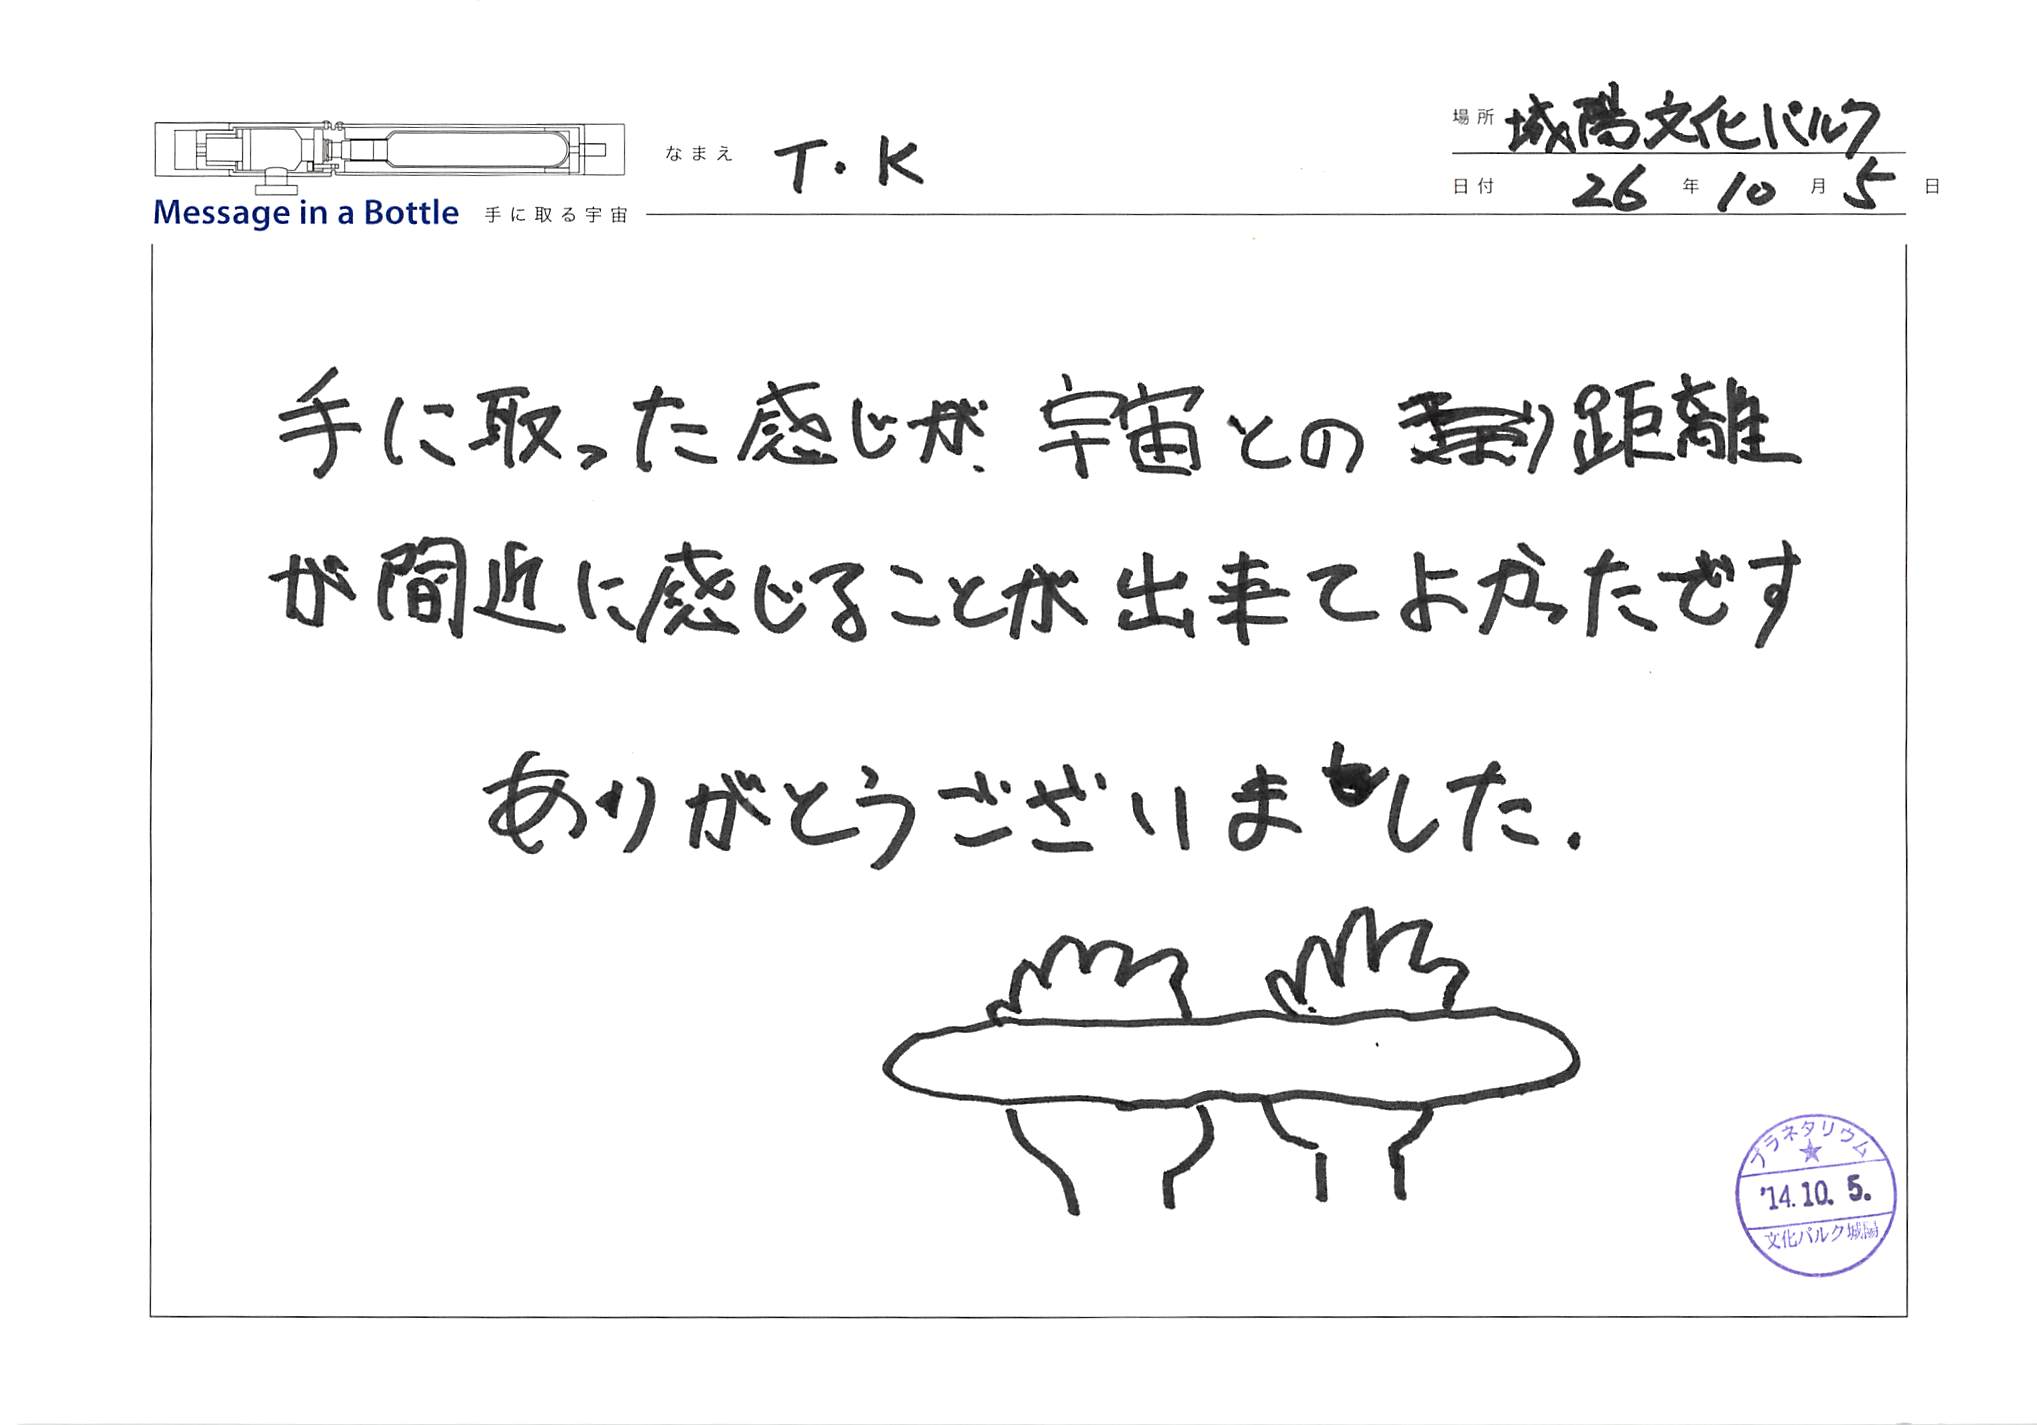 場所 城陽文化パルク
なまえ T.K
日付 26年10月5日
Message in a Bottle 手に取る宇宙
手に取った感じが、宇宙との距離
が間近に感じることが出来てよかったです
ありがとうございました.
プラネタリウム
★
'14.10.5.
文化パルク城陽